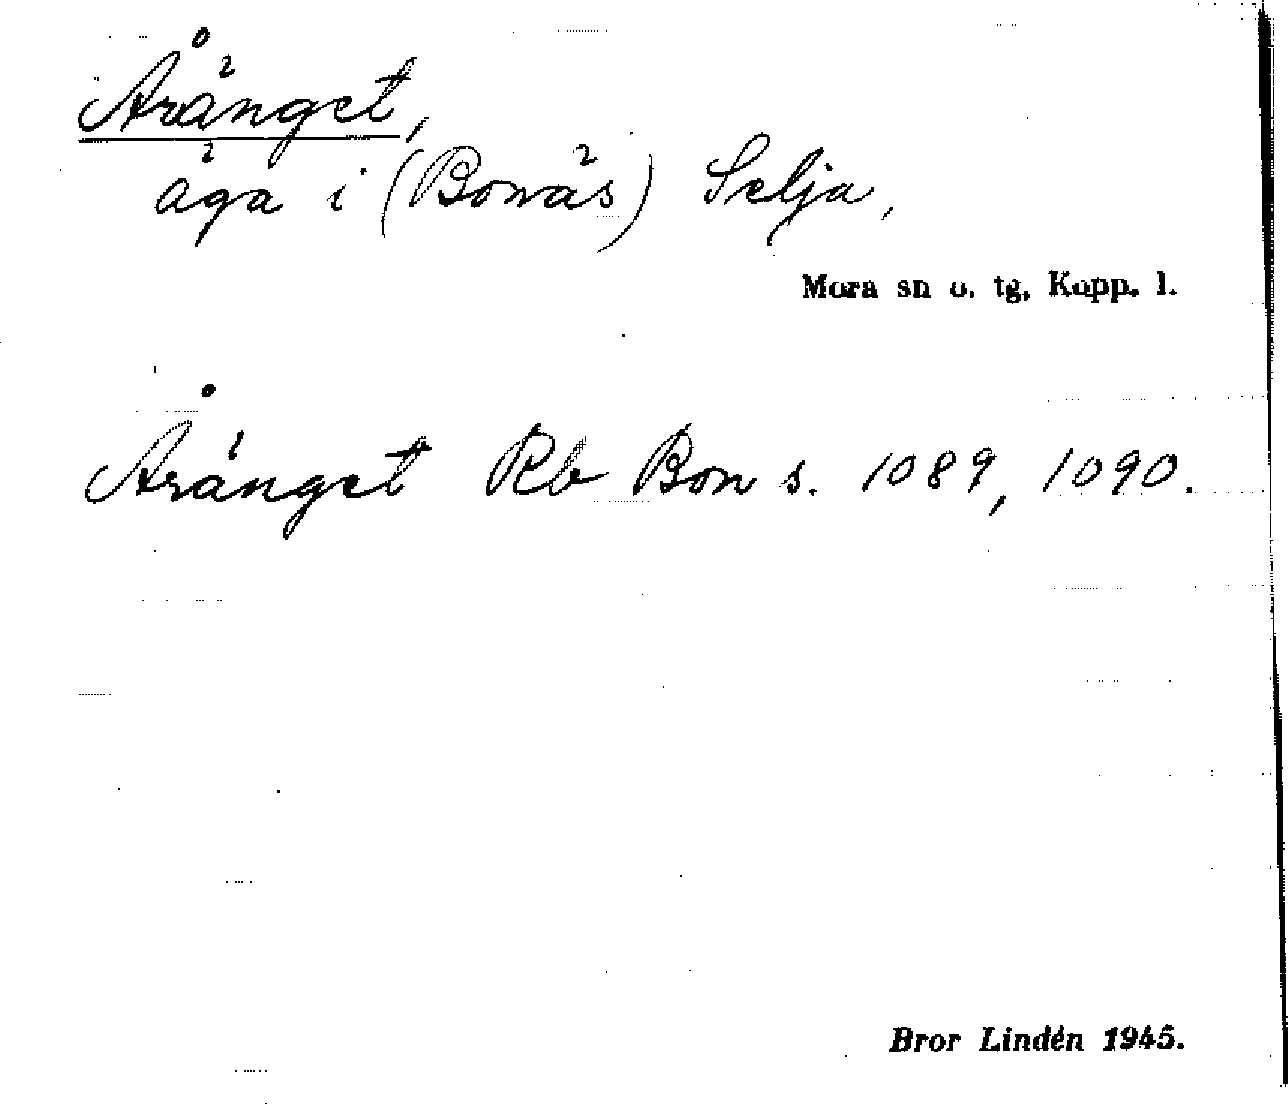 Åränget,
äga i (Bonäs) Selja,
Mora sn o. tg, Kopp. l.
Åränget Rb Bon s. 1089, 1090.
Bror Lindén 1945.